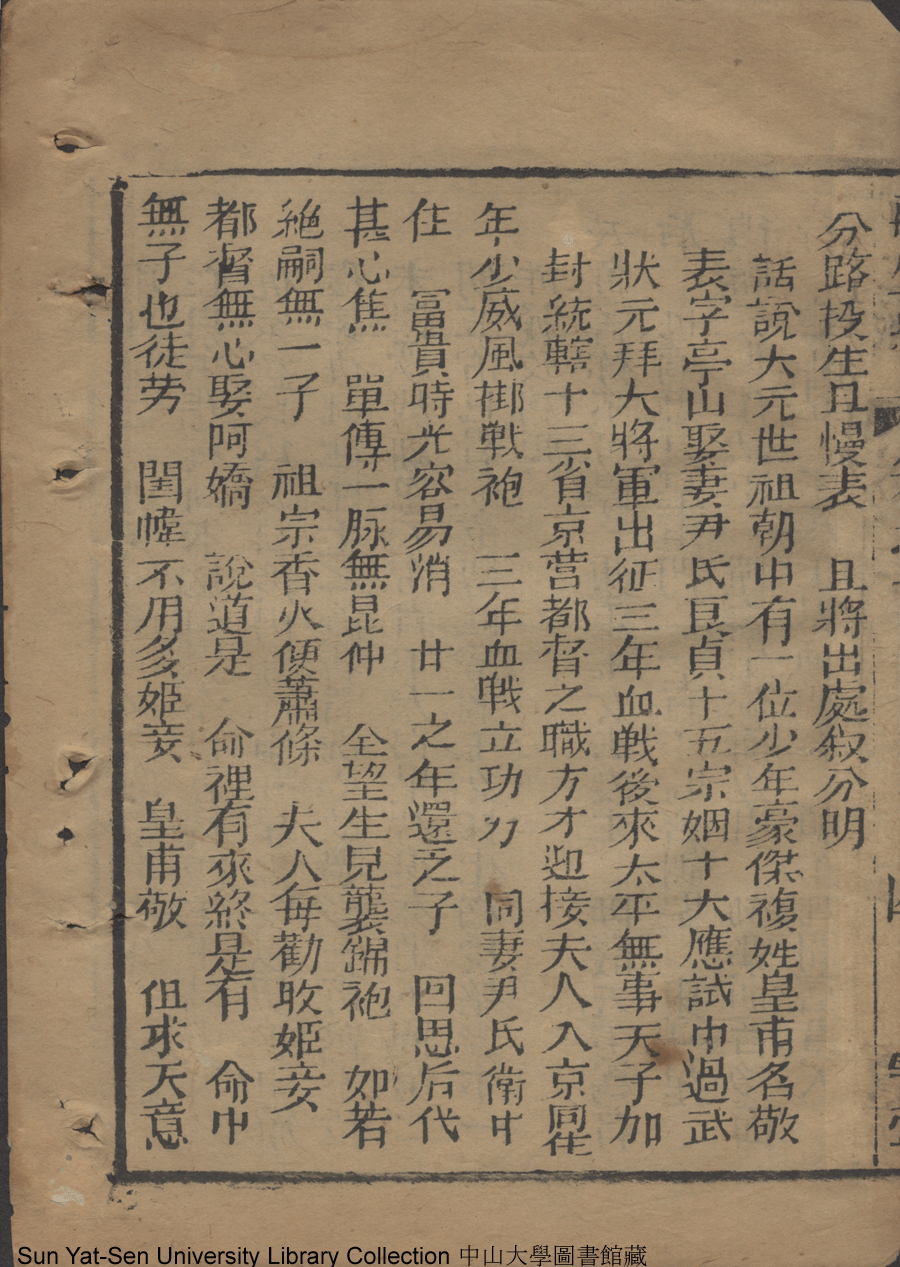 分路投生且慢表　且將出處叙分明
話說大元世祖朝中有一位少年豪傑複姓皇甫名敬
表字亭山娶妻尹氏良貞十五宗姻十大應試中過武
狀元拜大將軍出征三年血戰後來太平無事天子加
封統轄十三省京营都督之職方才迎接夫人入京同住
年少威風掛戰袍　三年血戰立功力　同妻尹氏衙中
住　冨貴時光容易消　廿一之年還乏子　回思后代
甚心焦　單傳一脉無昆仲　全望生兒襲錦袍　如若
絶嗣無一子　祖宗香火便蕭條　夫人每勸收姬妾
都督無心娶阿嬌　說道是　命裡有來終是有　命中
無子也徒劳　閨幃不用多姬妾　皇甫敬　但求天意
Sun Yat-Sen University Library Collection 中山大學圖書館藏